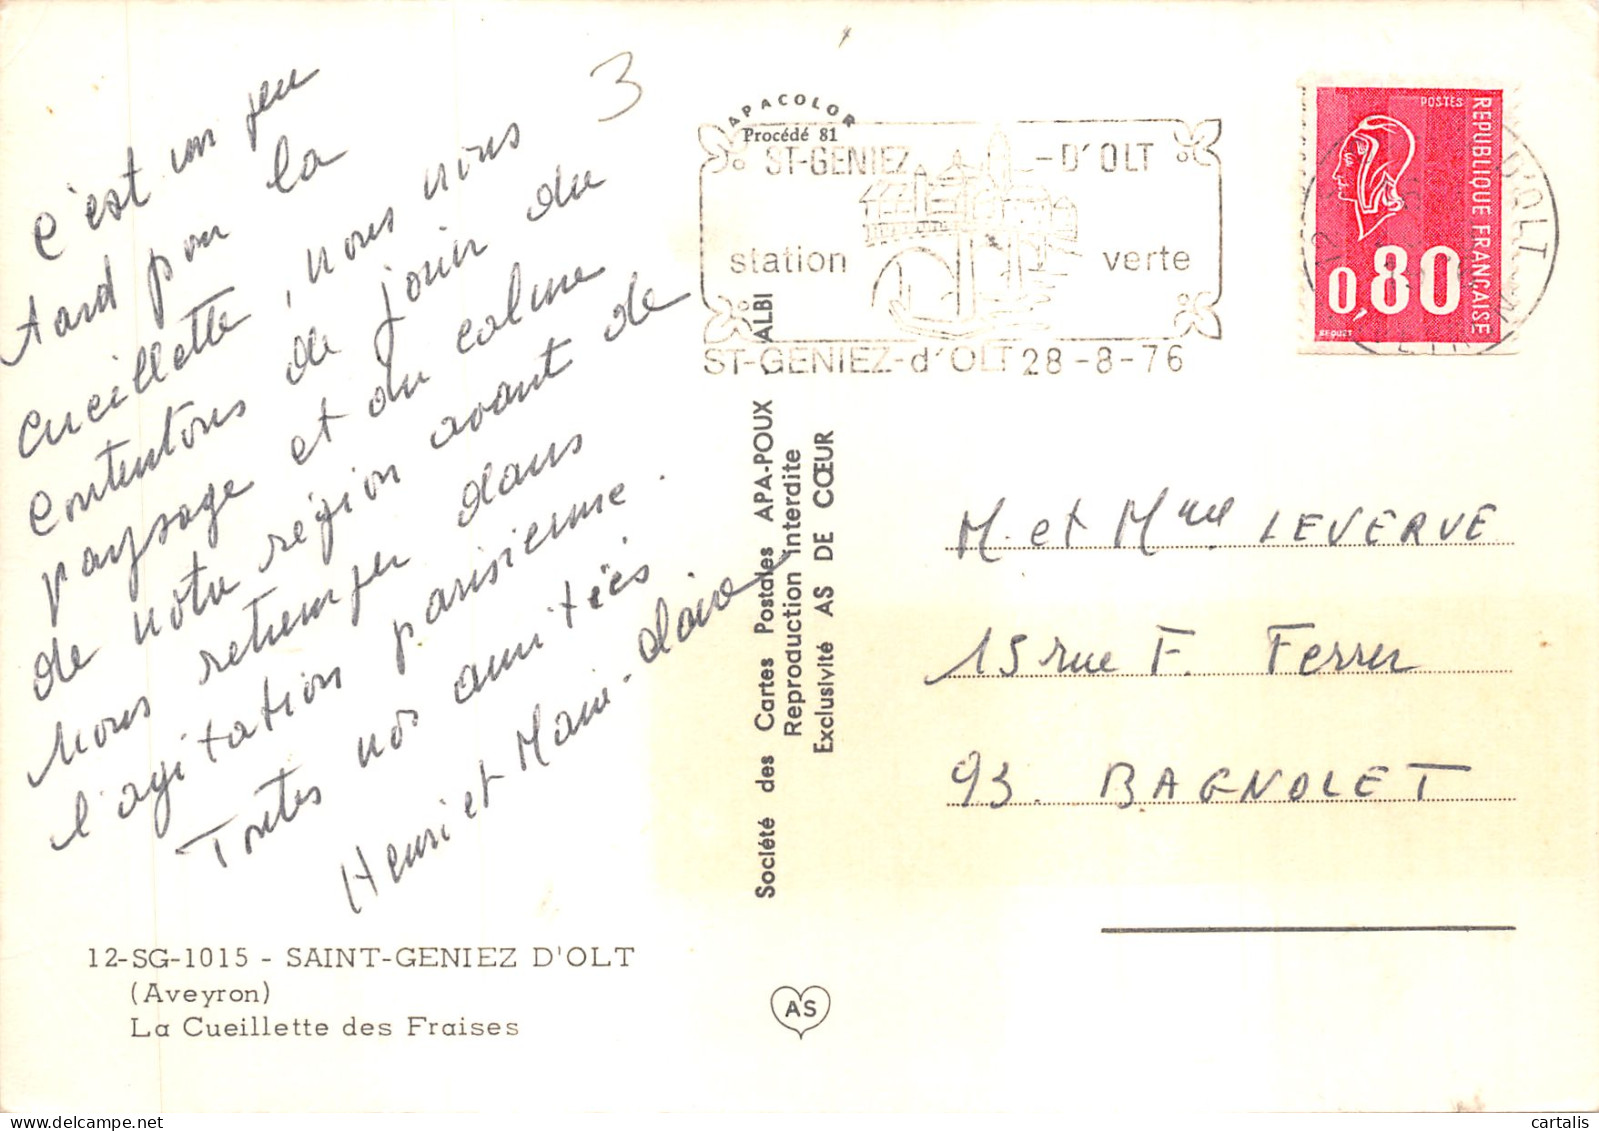 3
c'est un peu
tard pour la
cueillette, nous nous
contentons de jouir du
paysage et du calme
de notre région avant de
nous retremper dans
l'agitation parisienne.
Toutes nos amitiés
Henri et Marie-Claire
12-SG-1015 - SAINT-GENIEZ D'OLT
(Aveyron)
La Cueillette des Fraises
APACOLOR
Procédé 81
ST-GENIEZ - D'OLT
station verte
ST-GENIEZ-d'OLT 28-8-76
Société des Cartes Postales APA-POUX ALBI
Reproduction Interdite
Exclusivité AS DE CŒUR
AS
POSTES
REPUBLIQUE FRANÇAISE
0,80
BEQUET
D'OLT
M. et Mme LEVERVE
15 rue F. Ferrer
93. BAGNOLET
cartalis